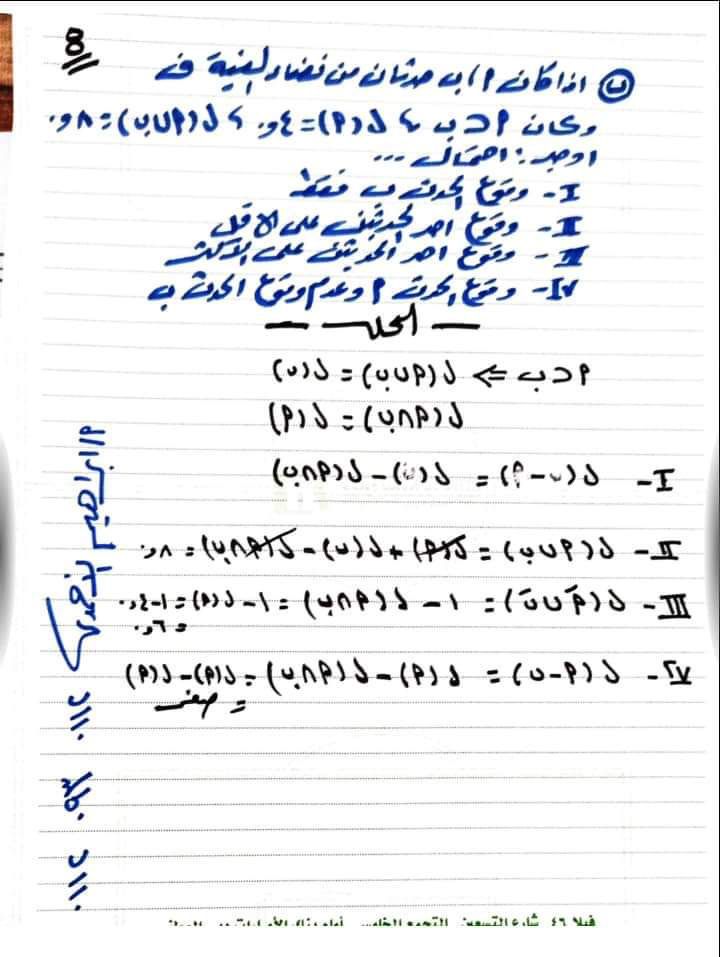 8
(ب) اذا كان أ، ب حدثان من فضاء لعينة ف
وكان أ ⊂ ب ، ل(أ) = ٤و. ، ل(أ∪ب) = ٨و.
اوجد : احتمال ...
I- وقوع الحدث ب فقط
II- وقوع احد الحدثين على الاقل
III- وقوع احد الحدثين على الاكثر
IV- وقوع الحدث أ وعدم وقوع الحدث ب
— الحل —
أ ⊂ ب ⇐ ل(أ∪ب) = ل(ب)
ل(أ∩ب) = ل(أ)
I- ل(ب-أ) = ل(ب) - ل(أ∩ب)
II- ل(أ∪ب) = ل(أ) + ل(ب) - ل(أ∩ب) = ٨و.
III- ل(أَ∪بَ) = ١ - ل(أ∩ب) = ١ - ل(أ) = ١-٤و.
= ٦و.
IV- ل(أ-ب) = ل(أ) - ل(أ∩ب) = ل(أ) - ل(أ)
= صفر
أ/ابراهيم الاحمدى
فيلا ٤٦ شارع التسعين التجمع الخامس